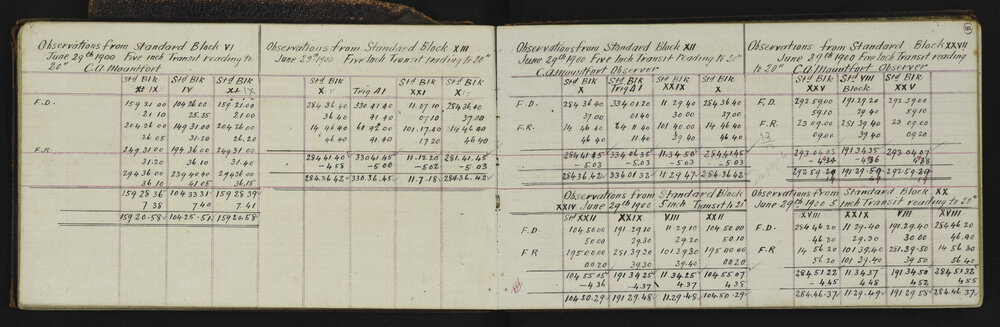 Observations from Standard Block VI
June 29th 1900 Five Inch Transit reading to
20" C.A. Mountfort
Std Blk Std Blk Std Blk
XI IX IV XI IX
F.D. 159 21.00 104 26.00 159 21.00
21.10 25.55 21.00
204 26.00 149 31.00 204 26.00
26.05 31.20 26.20
F.R 249 31.00 194 36.00 249 31.00
31.20 36.10 31.40
294 36.00 239 40.40 294 36.00
36.10 41.05 36.15
159 28 36 104 33 31 159 28 39
7 38 7 40 7 41
159 20.58 104 25.51 159 20.58
Observations from Standard Block XIII
June 29th 1900 Five Inch Transit reading to 20"
Std Blk Std Blk Std Blk
X Trig A1 XXI X
284 36.40 330 41.40 11.07.10 284 36.40
36 40 41 40 07.10 37.00
14 46.40 61 42.00 101.17.40 14 46.40
46 40 41.40 17 20 46 40
284 41 40 330 41 45 11.12.20 281.41.45
-4 58 -5 00 -5 02 -5 03
284.36.42 330.36.45 11.7.18 284.36.42
Observations from Standard Block XII
June 29th 1900 Five Inch Transit reading to 20"
C.A. Mountfort Observer
Std Blk Std Blk Std Blk Std Blk
X Trig A1 XXIX X
F.D. 284 36 40 334 01.20 11 29.40 284 36 40
37.00 01 40 30.00 37.00
F.R. 14 46 40 64 11 40 101 40.00 14 46 40
46 40 11.40 39 40 46 40
284 41 45 334 06 35 11 34.50 284 41 45
-5.03 -5.03 -5.03 -5 03
284 36 42 334 01 32 11 29 47 284 36 42
Observations from Standard Block
XXIV June 29th 1900 5 inch Transit to 20"
Std XXII XXIX VIII XXII
F.D 104 50 00 191 29 10 11 29 10 104 50 00
50 00 29.30 29.20 50 10
F R 195 00 00 281 39 30 101 29 30 195 00 00
00 20 39.30 39.40 00 20
104 55 05 191 34 25 11 34 25 104 55 07
-4 36 -4.37 4.37 4 38
104 50.29 191 29.48 11 29.48 104.50.29
Observations from Standard Block XXVII
June 29th 1900 Five Inch Transit reading
to 20" C.A. Mountfort Observer
Std Blk Std VIII Std Blk
XXV Block XXV
F.D. 292 59 00 191.29 20 292 59 00
59.10 29 40 59 10
F.R. 23 09.00 281 39 40 23 09.00
09.00 39.40 09.20
293 04 03 191.34 35 293 04 07
-4 34 -4 36 4 38
292 59.29 191 29.59 292 59.29
Observations from Standard Block XX
June 29th 1900 5 Inch Transit reading to 20"
XVIII XXIX VIII XVIII
F.D. 284 46 20 11 29.40 191.29.40 284 46 20
46 30 29.30 30 00 46.40
F.R 14 56 20 101 39.40 281.39.50 14 56 30
56 20 101 39.40 39 50 56 40
284 51 22 11 34 37 191 34 50 284 51 32
-4.45 4 48 4 52 4 55
284.46.37 11.29.49 191 29 58 284.46 37